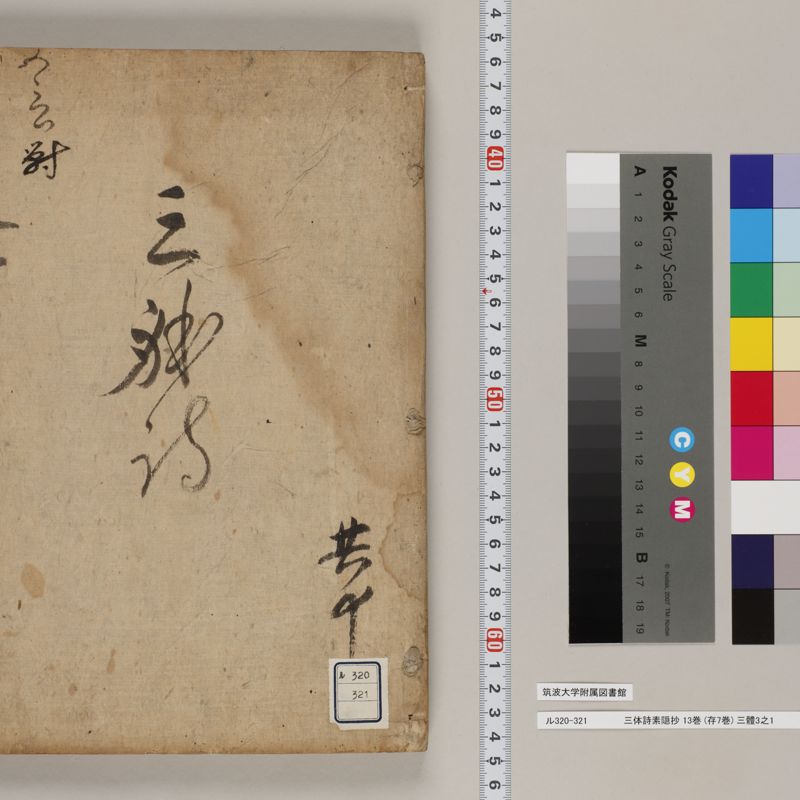 三
詩
共
ル 320
321
4
5
6
7
8
9
40
1
2
3
4
5
6
7
8
9
50
1
2
3
4
5
6
7
8
9
60
1
2
3
4
5
6
Kodak Gray Scale
A 1 2 3 4 5 6 M 8 9 10 11 12 13 14 15 B 17 18 19
C Y M
© Kodak, 2007 TM: Kodak
筑波大学附属図書館
ル320-321 三体詩素隠抄 13巻 (存7巻) 三體3之1